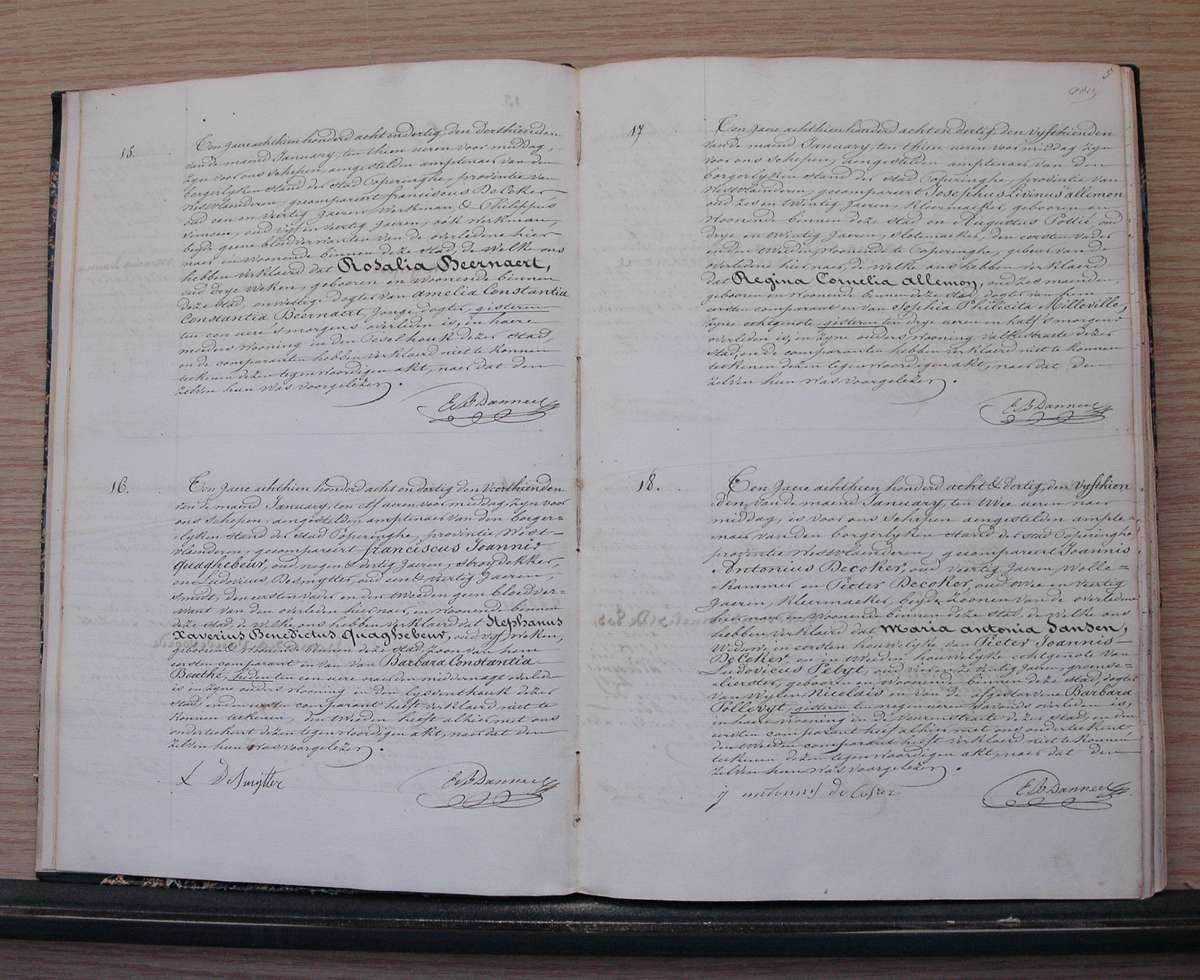 15.
Ten jaere achthien honderd acht en dertig, den derthienden
van de maend January, ten thien ueren voor middag,
zyn voor ons schepen, aengestelden amptenaer van den
borgerlyken stand der stad Poperinghe, provintie van
Westvlaenderen, gecompareert franciscus De Coker
oud een en veertig Jaeren, Werkman, & Philippus
oud vyf en veertig Jaeren, ook Werkman,
beyde geene bloedverwanten van de overledene hier
naer en Woonende binnen deze stad de Welke ons
hebben verklaerd dat Rosalia Beernaert,
oud drye Weken, geboren en Woonende binnen
deze stad, onwettige dogter van Amelia Constantia
Constantia Beernaert, Jonge dogter, gisteren
ten een uere smorgens overleden is, in haere
moeders Wooning in den Eeselhoek dezer stad,
en de comparanten hebben verklaerd niet te konnen
teekenen dezen tegenwoordigen akt, naer dat den
zelven hun Was voorgelezen.
E. B. Danneel
16.
Ten Jaere achthien honderd acht en dertig den veerthienden
van de maend January, ten elf ueren voor middag, zyn voor
ons schepen, aengestelden amptenaer van den borger-
lyken stand der stad Poperinghe, provintie West-
vlaenderen, gecompareert franciscus Joannes
Quaghebeur, oud negen & dertig Jaeren, stroydekker,
en Ludovicus Desmytter, oud een & veertig Jaeren,
smidt, den eersten vader en den tweeden geen bloedver-
want van den overleden hier naer, en Woonende binnen
deze stad de Welke ons hebben verklaerd dat Stephanus
Xaverius Benedictus Quaghebeur, oud vyf Weken,
geboren en Woonende binnen deze stad, zoon van hem
eersten comparant en van Barbara Constantia
Beutke, heden ten een uere naer den middernagt overleden
is in zyne ouders Wooning in den dezer
stad, en den eersten comparant heeft verklaerd niet te
konnen teekenen, den tweeden heeft alhier met ons
onderteekent dezen tegenwoordigen akt, naer dat den
zelven hun Was voorgelezen.
L Desmytter
E. B. Danneel
17
Ten Jaere achthien honderd acht en dertig, den vyfthienden
van de maend January, ten thien ueren voor middag zyn
voor ons schepen, aengestelden amptenaer van den
borgerlyken stand der stad Poperinghe, provintie van
Westvlaenderen, gecompareert Josephus Livinus allemon
oud zes en twintig Jaeren, kleermaeker, geboren en
Woonende binnen deze stad en Augustus Pottie, oud
drye en twintig Jaeren, slotemaeker, den eersten vader
en den tweeden, Woonende te Poperinghe, gebuer van de
overledene hier naer, de Welke ons hebben verklaerd
dat Regina Cornelia Allemon, oud zes maenden
geboren en Woonende binnen deze stad, dogter van hem
eersten comparant en van Sophia Philicita Milleville,
zyne echtgenote, gisteren ten drye ueren en half smorgens
overleden is, in zyne ouders Wooning dezer
stad, en de comparanten hebben verklaerd niet te konnen
teekenen dezen tegenwoordigen akt, naer dat den
zelven hun Was voorgelezen.
E. B. Danneel
18.
Ten Jaere achthien honderd acht & dertig, den vyfthien
den van de maend January, ten twee ueren naer
middag, is voor ons schepen aengestelden ampte-
naer van den borgerlyken stand der stad Poperinghe
provintie Westvlaenderen, gecompareert Joannis
Antonius Decoker, oud veertig Jaeren, Wolle-
kammer en Pieter Decoker, oud twee en veertig
Jaeren, kleermaeker, beyde zoonen van de overledene
hier naer en Woonende binnen deze stad, de Welke ons
hebben verklaerd dat Maria antonia Jansen,
Weduwe in eersten houwelyke van Pieter Joannis
De Coker, en in tweeden houwelyke echtgenote van
Ludovicus Febyt, oud Jaeren, groensel-
lierster, geboren en Woonende binnen deze stad, dogter
van Wylen Nicolais en van de afgestorvene Barbara
Pollevyt, gisteren te negen ueren s'avonds overleden is,
in haere Wooning in de Veurnstraete dezer stad, en den
eersten comparant heeft alhier met ons onderteekent,
den tweeden comparant heeft verklaerd niet te konnen
teekenen dezen tegenwoordigen akt, naer dat den
zelven hun Was voorgelezen.
j anthonius de Coker
E. B. Danneel